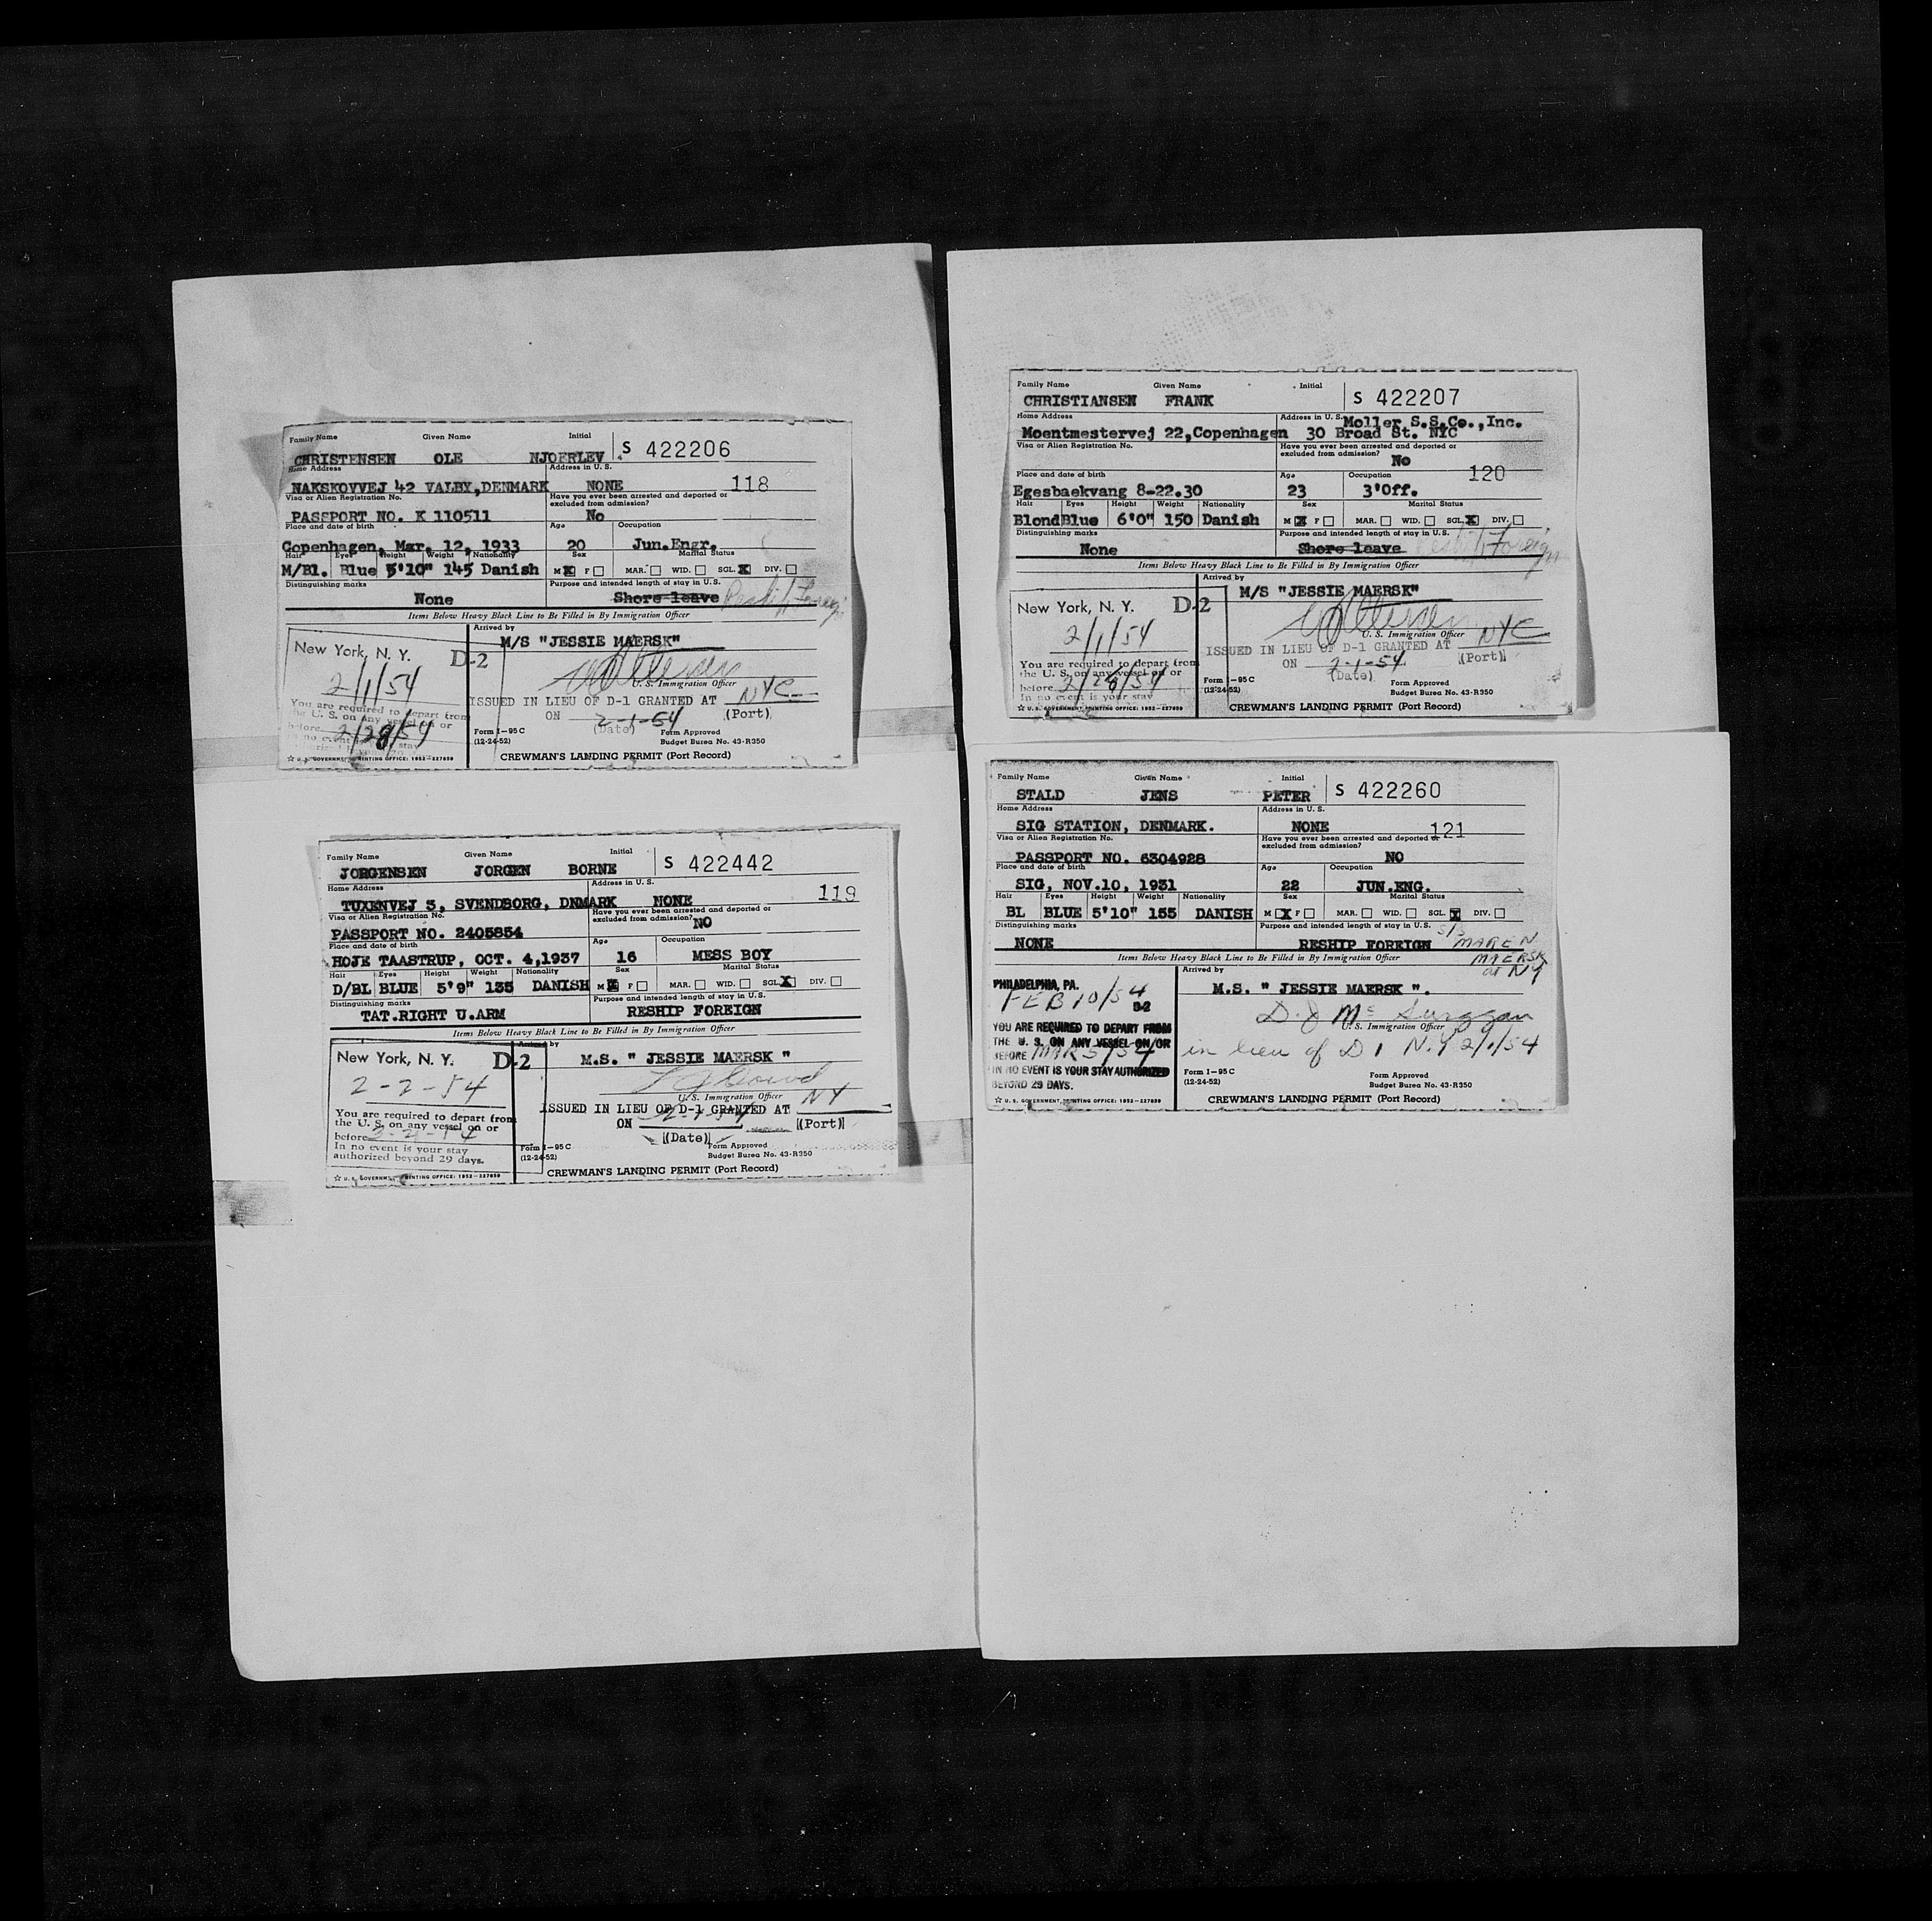 Family Name Given Name Initial S 422206
CHRISTENSEN OLE NJOERLEV
Home Address Address in U. S.
NAKSKOVVEJ 42 VALBY,DENMARK NONE 118
Visa or Alien Registration No. Have you ever been arrested and deported or excluded from admission?
PASSPORT NO. K 110511 No
Place and date of birth Age Occupation
Copenhagen, Mar. 12, 1933 20 Jun.Engr.
Hair Eyes Height Weight Nationality Sex Marital Status
M/Bl. Blue 5'10" 145 Danish M X F MAR. WID. SGL. X DIV.
Distinguishing marks Purpose and intended length of stay in U.S.
None Shore leave Foreign
Items Below Heavy Black Line to Be Filled in By Immigration Officer
Arrived by
M/S "JESSIE MAERSK"
New York, N. Y. D-2
2/1/54
U. S. Immigration Officer
You are required to depart from
the U. S. on any vessel on or
before 2/28/54
In no event is your stay
authorized beyond 29 days.
ISSUED IN LIEU OF D-1 GRANTED AT NYC
ON 2-1-54 (Port)
(Date)
Form I-95 C
(12-24-52)
Form Approved
Budget Burea No. 43-R350
☆ U. S. GOVERNMENT PRINTING OFFICE: 1952-227859
CREWMAN'S LANDING PERMIT (Port Record)
Family Name Given Name Initial S 422442
JORGENSEN JORGEN BORNE
Home Address Address in U. S.
TUXENVEJ 3, SVENDBORG, DNMARK NONE 119
Visa or Alien Registration No. Have you ever been arrested and deported or excluded from admission?
PASSPORT NO. 2405854 NO
Place and date of birth Age Occupation
HOJE TAASTRUP, OCT. 4,1937 16 MESS BOY
Hair Eyes Height Weight Nationality Sex Marital Status
D/BL BLUE 5'9" 135 DANISH M X F MAR. WID. SGL. X DIV.
Distinguishing marks Purpose and intended length of stay in U.S.
TAT.RIGHT U.ARM RESHIP FOREIGN
Items Below Heavy Black Line to Be Filled in By Immigration Officer
Arrived by
M.S. " JESSIE MAERSK "
New York, N. Y. D-2
2-2-54
U. S. Immigration Officer
You are required to depart from
the U. S. on any vessel on or
before
In no event is your stay
authorized beyond 29 days.
ISSUED IN LIEU OF D-1 GRANTED AT NY
ON (Port)
(Date)
Form I-95 C
(12-24-52)
Form Approved
Budget Burea No. 43-R350
☆ U. S. GOVERNMENT PRINTING OFFICE: 1952-227859
CREWMAN'S LANDING PERMIT (Port Record)
Family Name Given Name Initial S 422207
CHRISTIANSEN FRANK
Home Address Address in U. S. Moller S.S.Co.,Inc.
Moentmestervej 22,Copenhagen 30 Broad St. NYC
Visa or Alien Registration No. Have you ever been arrested and deported or excluded from admission?
No
Place and date of birth Age Occupation 120
Egesbaekvang 8-22.30 23 3'Off.
Hair Eyes Height Weight Nationality Sex Marital Status
Blond Blue 6'0" 150 Danish M X F MAR. WID. SGL. X DIV.
Distinguishing marks Purpose and intended length of stay in U.S.
None Shore leave Foreign
Items Below Heavy Black Line to Be Filled in By Immigration Officer
Arrived by
M/S "JESSIE MAERSK"
New York, N. Y. D-2
2/1/54
U. S. Immigration Officer
You are required to depart from
the U. S. on any vessel on or
before 2/28/54
In no event is your stay
ISSUED IN LIEU OF D-1 GRANTED AT NYC
ON 2-1-54 (Port)
(Date)
Form I-95 C
(12-24-52)
Form Approved
Budget Burea No. 43-R350
☆ U. S. GOVERNMENT PRINTING OFFICE: 1952-227859
CREWMAN'S LANDING PERMIT (Port Record)
Family Name Given Name Initial S 422260
STALD JENS PETER
Home Address Address in U. S.
SIG STATION, DENMARK. NONE 121
Visa or Alien Registration No. Have you ever been arrested and deported or excluded from admission?
PASSPORT NO. 6304928 NO
Place and date of birth Age Occupation
SIG, NOV.10, 1931 22 JUN.ENG.
Hair Eyes Height Weight Nationality Sex Marital Status
BL BLUE 5'10" 155 DANISH M X F MAR. WID. SGL. X DIV.
Distinguishing marks Purpose and intended length of stay in U.S.
NONE RESHIP FOREIGN S/S MAREN
MAERSK
at NY
Items Below Heavy Black Line to Be Filled in By Immigration Officer
Arrived by
M.S. " JESSIE MAERSK ".
PHILADELPHIA, PA.
FEB 10/54
D-2
U. S. Immigration Officer
YOU ARE REQUIRED TO DEPART FROM
THE U. S. ON ANY VESSEL ON/OR
BEFORE MAR 5/54
IN NO EVENT IS YOUR STAY AUTHORIZED
BEYOND 29 DAYS.
in lieu of D 1 N.Y 2/1/54
Form I-95 C
(12-24-52)
Form Approved
Budget Burea No. 43-R350
☆ U. S. GOVERNMENT PRINTING OFFICE: 1952-227859
CREWMAN'S LANDING PERMIT (Port Record)